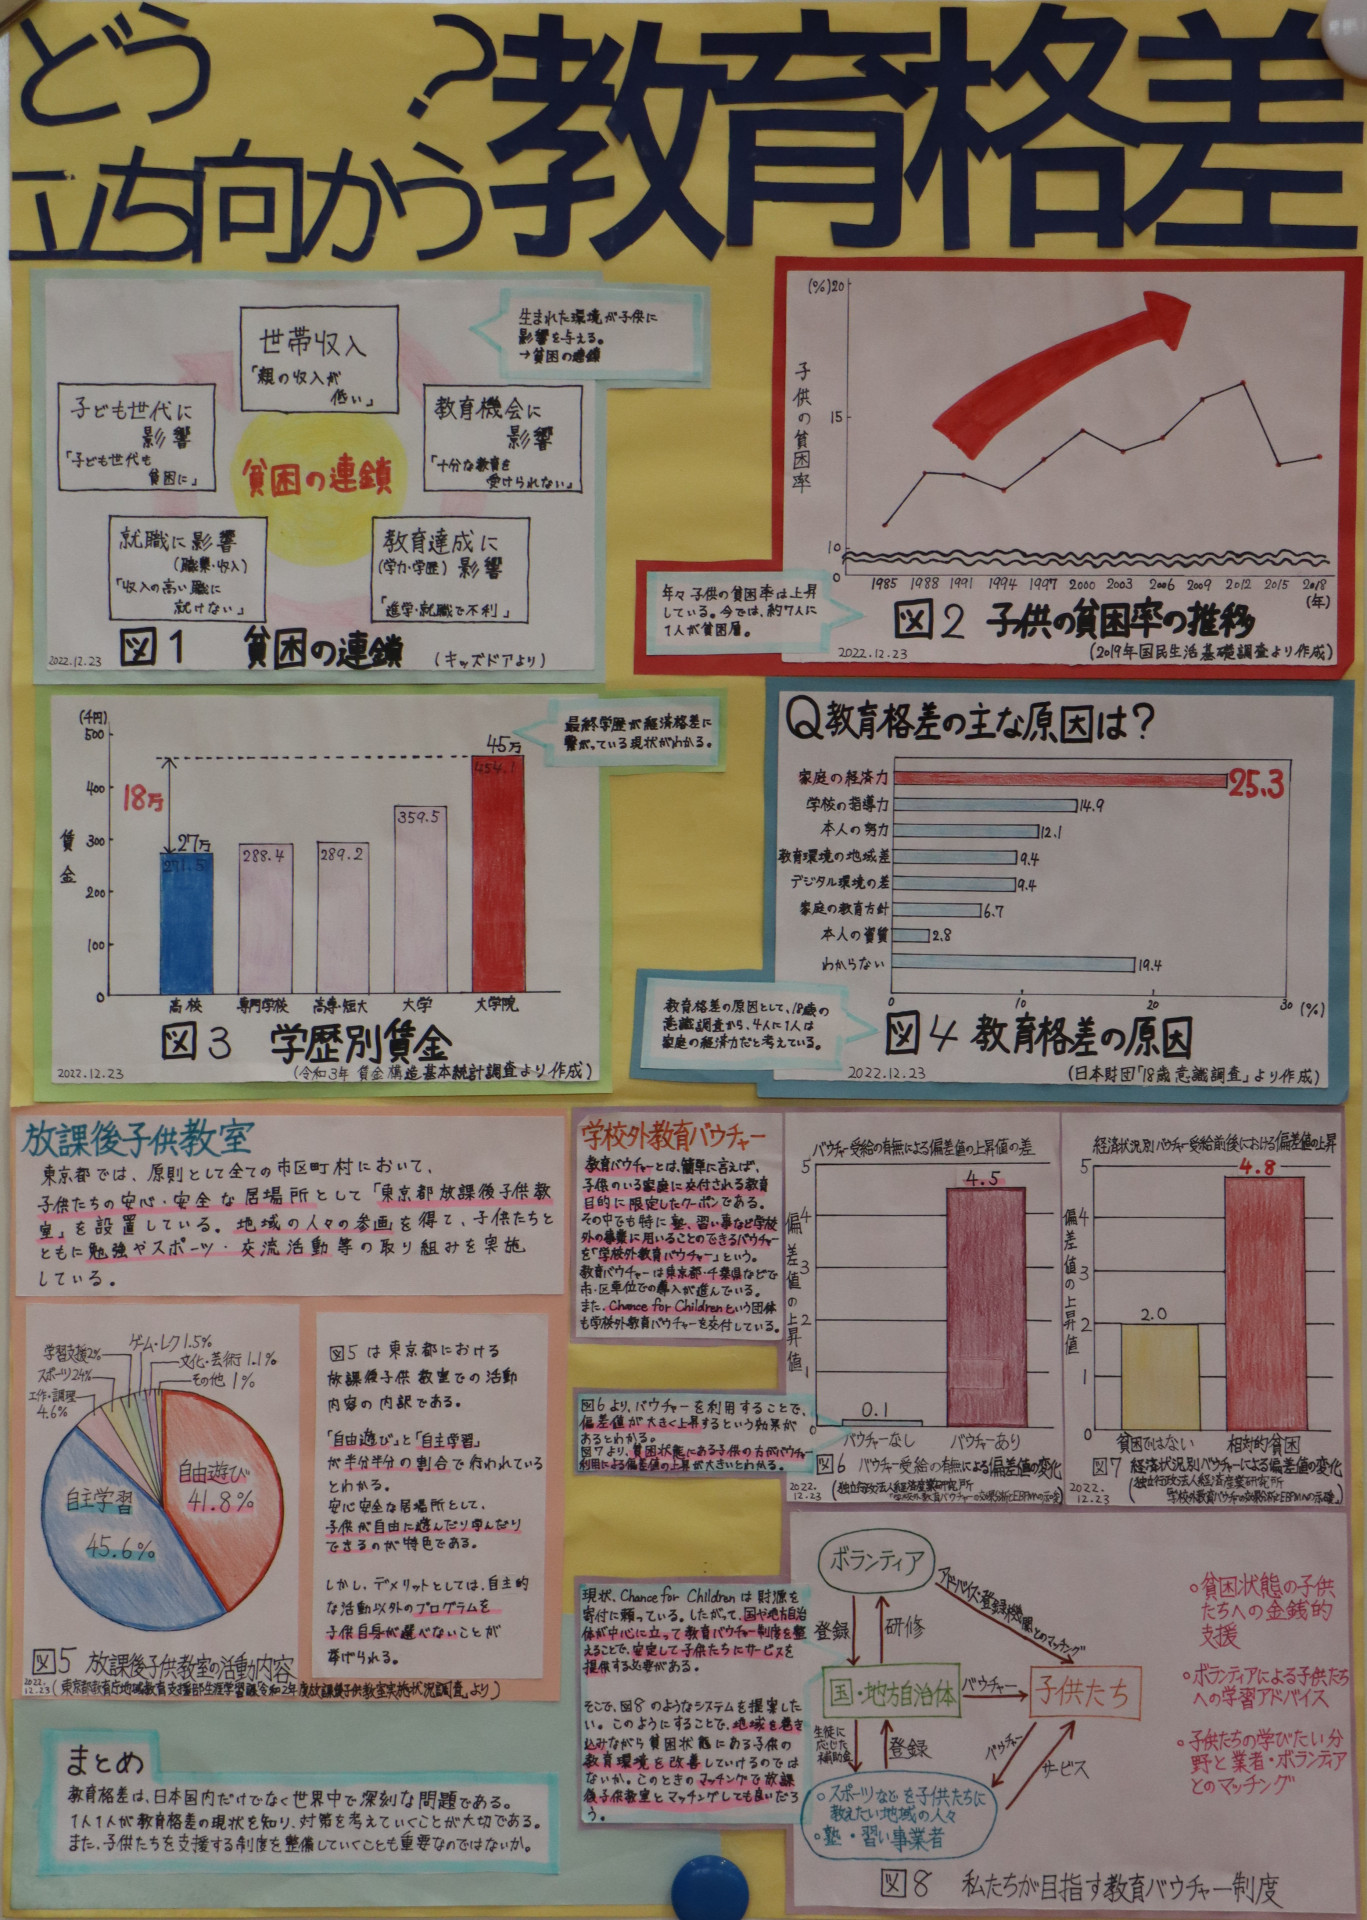 どう
立ち向かう？教育格差
世帯収入
「親の収入が
低い」
生まれた環境が子供に
影響を与える。
→貧困の連鎖
子ども世代に
影響
「子ども世代も
貧困に」
教育機会に
影響
「十分な教育を
受けられない」
貧困の連鎖
就職に影響
(職業・収入)
「収入の高い職に
就けない」
教育達成に
(学力・学歴) 影響
「進学・就職で不利」
図1 貧困の連鎖
2022.12.23
(キッズドアより)
(%)20
15
10
0
子供の貧困率
1985 1988 1991 1994 1997 2000 2003 2006 2009 2012 2015 2018
(年)
年々子供の貧困率は上昇
している。今では、約7人に
1人が貧困層。
図2 子供の貧困率の推移
2022.12.23
(2019年国民生活基礎調査より作成)
(千円)
500
400
300
200
100
0
賃金
18万
27万
271.5
288.4
289.2
359.5
45万
454.1
高校 専門学校 高専・短大 大学 大学院
最終学歴が経済格差に
繋がっている現状がわかる。
図3 学歴別賃金
2022.12.23
(令和3年賃金構造基本統計調査より作成)
Q教育格差の主な原因は？
家庭の経済力 25.3
学校の指導力 14.9
本人の努力 12.1
教育環境の地域差 9.4
デジタル環境の差 9.4
家庭の教育方針 6.7
本人の資質 2.8
わからない 19.4
0 10 20 30 (%)
教育格差の原因として、18歳の
意識調査から、4人に1人は
家庭の経済力だと考えている。
図4 教育格差の原因
2022.12.23
(日本財団「18歳意識調査」より作成)
放課後子供教室
東京都では、原則として全ての市区町村において、
子供たちの安心・安全な居場所として「東京都放課後子供教
室」を設置している。地域の人々の参画を得て、子供たちと
ともに勉強やスポーツ・交流活動等の取り組みを実施
している。
ゲーム・レク1.5%
学習支援2%
文化・芸術1.1%
スポーツ2.4%
その他1%
工作・調理
4.6%
自由遊び
41.8%
自主学習
45.6%
図5 放課後子供教室の活動内容
2022.
12.23
(東京都教育庁地域教育支援部生涯学習課「令和2年度放課後子供教室実施状況調査」より)
図5は東京都における
放課後子供教室での活動
内容の内訳である。
「自由遊び」と「自主学習」
が半分半分の割合で行われている
とわかる。
安心安全な居場所として、
子供が自由に遊んだり学んだり
できるのが特色である。
しかし、デメリットとしては、自主的
な活動以外のプログラムを
子供自身が選べないことが
挙げられる。
学校外教育バウチャー
教育バウチャーとは、簡単に言えば、
子供のいる家庭に交付される教育
目的に限定したクーポンである。
その中でも特に塾、習い事など学校
外の事業に用いることのできるバウチャー
を「学校外教育バウチャー」という。
教育バウチャーは東京都・千葉県などで
市・区単位での導入が進んでいる。
また、Chance for Childrenという団体
も学校外教育バウチャーを交付している。
バウチャー受給の有無による偏差値の上昇値の差
5
4
3
2
1
0
偏差値の上昇値
0.1
4.5
バウチャーなし バウチャーあり
図6 バウチャー受給の有無による偏差値の変化
2022.
12.23
(独立行政法人経済産業研究所
経済状況別バウチャー受給前後における偏差値の上昇
5
4
3
2
1
0
偏差値の上昇値
2.0
4.8
貧困ではない 相対的貧困
図7 経済状況別バウチャーによる偏差値の変化
2022.
12.23
(独立行政法人経済産業研究所
図6より、バウチャーを利用することで、
偏差値が大きく上昇するという効果が
あるとわかる。
図7より、貧困状態にある子供の方がバウチャー
利用による偏差値の上昇が大きいとわかる。
現状、Chance for Childrenは財源を
寄付に頼っている。したがって、国や地方自治
体が中心に立って教育バウチャー制度を整
えることで、安定して子供たちにサービスを
提供する必要がある。
そこで、図8のようなシステムを提案した
い。このようにすることで、地域を巻き
込みながら貧困状態にある子供の
教育環境を改善していけるのでは
ないか。このときのマッチングで放課
後子供教室とマッチングしても良いだろ
う。
ボランティア
登録
研修
アドバイス・登録機関とのマッチング
国・地方自治体
バウチャー
子供たち
生徒に
応じた
補助金
登録
バウチャー
サービス
。スポーツなどを子供たちに
教えたい地域の人々
。塾・習い事業者
。貧困状態の子供
たちへの金銭的
支援
。ボランティアによる子供たち
への学習アドバイス
。子供たちの学びたい分
野と業者・ボランティア
とのマッチング
図8 私たちが目指す教育バウチャー制度
まとめ
教育格差は、日本国内だけでなく世界中で深刻な問題である。
1人1人が教育格差の現状を知り、対策を考えていくことが大切である。
また、子供たちを支援する制度を整備していくことも重要なのではないか。